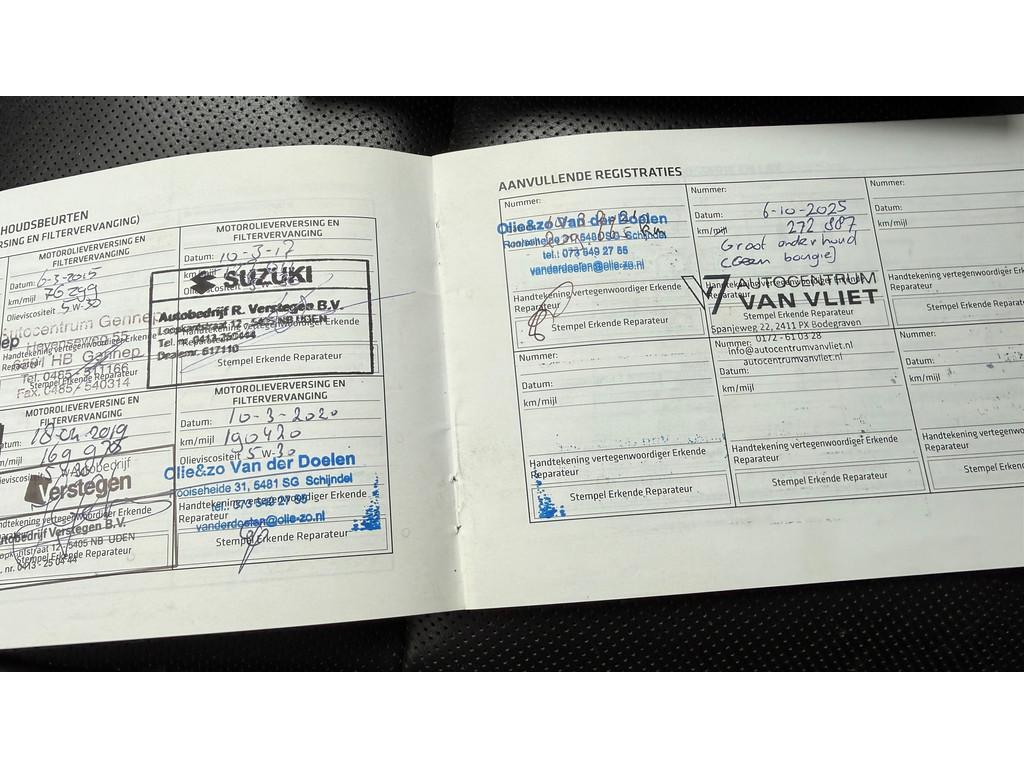 HOUDSBEURTEN
RSING EN FILTERVERVANGING)
MOTOROLIEVERVERSING EN
FILTERVERVANGING
Datum: 6-3-2015
km/mijl 76299
Olieviscositeit 5W-30
Autocentrum Gennep
Handtekening vertegenwoordiger Erkende
HB Gennep
Tel. 0485 - 511166
Stempel Erkende Reparateur
Fax. 0485 - 540314
MOTOROLIEVERVERSING EN
FILTERVERVANGING
Datum: 10-3-17
km/mijl
SUZUKI
Autobedrijf R. Verstegen B.V.
Loopkantstraat 12 - 5405 NB UDEN
Tel. nr. 0413-250444
Dealernr. 617110
Stempel Erkende Reparateur
MOTOROLIEVERVERSING EN
FILTERVERVANGING
169 978
Autobedrijf
Verstegen
Handtekening vertegenwoordiger Erkende
Autobedrijf Verstegen B.V.
Loopkantstraat 12 5405 NB UDEN
Stempel Erkende Reparateur
nr. 0413 - 25 04 44
MOTOROLIEVERVERSING EN
FILTERVERVANGING
Datum: 10-3-2020
km/mijl 190420
Olieviscositeit 5W-30
Olie&zo Van der Doelen
ooiseheide 31, 5481 SG Schijndel
Handtekening vertegenwoordiger Erkende
tel.: 073 549 27 55
Reparateur
vanderdoelen@olie-zo.nl
Stempel Erkende Reparateur
AANVULLENDE REGISTRATIES
Nummer:
Olie&zo Van der Doelen
Schijndel
tel.: 073 549 27 55
vanderdoelen@olie-zo.nl
Handtekening vertegenwoordiger Erkende
Reparateur
Stempel Erkende Reparateur
Nummer:
Datum: 6-10-2025
km/mijl 272 887
Groot onderhoud
(Geen bougie)
AUTOCENTRUM
VAN VLIET
Stempel Erkende Reparateur
Spanjeweg 22, 2411 PX Bodegraven
0172 - 61 03 28
info@autocentrumvanvliet.nl
autocentrumvanvliet.nl
Nummer:
Datum:
km/mijl
Handtekening vertegenwoordiger Erkende
Reparateur
Stempel Erkende Reparateur
Nummer:
Datum:
km/mijl
Handtekening vertegenwoordiger Erkende
Reparateur
Stempel Erkende Reparateur
Nummer:
Datum:
km/mijl
Handtekening vertegenwoordiger Erkende
Reparateur
Stempel Erkende Reparateur
Nummer:
Datum:
km/mijl
Handtekening vertegenwoo
Reparateur
Stempel Erkende Re